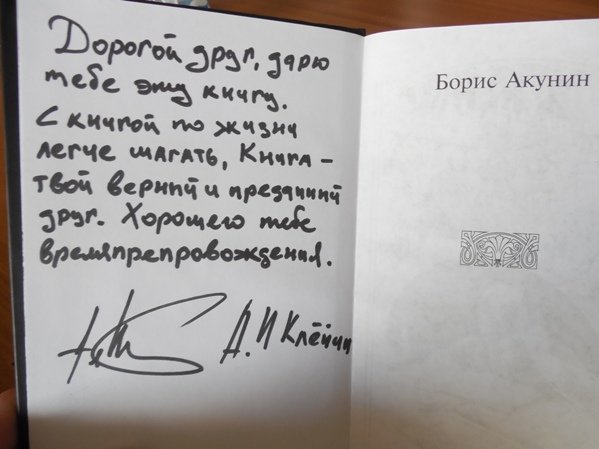 Дорогой друг, дарю
тебе эту книгу.
С книгой по жизни
легче шагать, Книга –
твой верний и преданний
друг. Хорошего тебе
времяпрепровождения.
Д. И Клёйчи
Борис Акунин